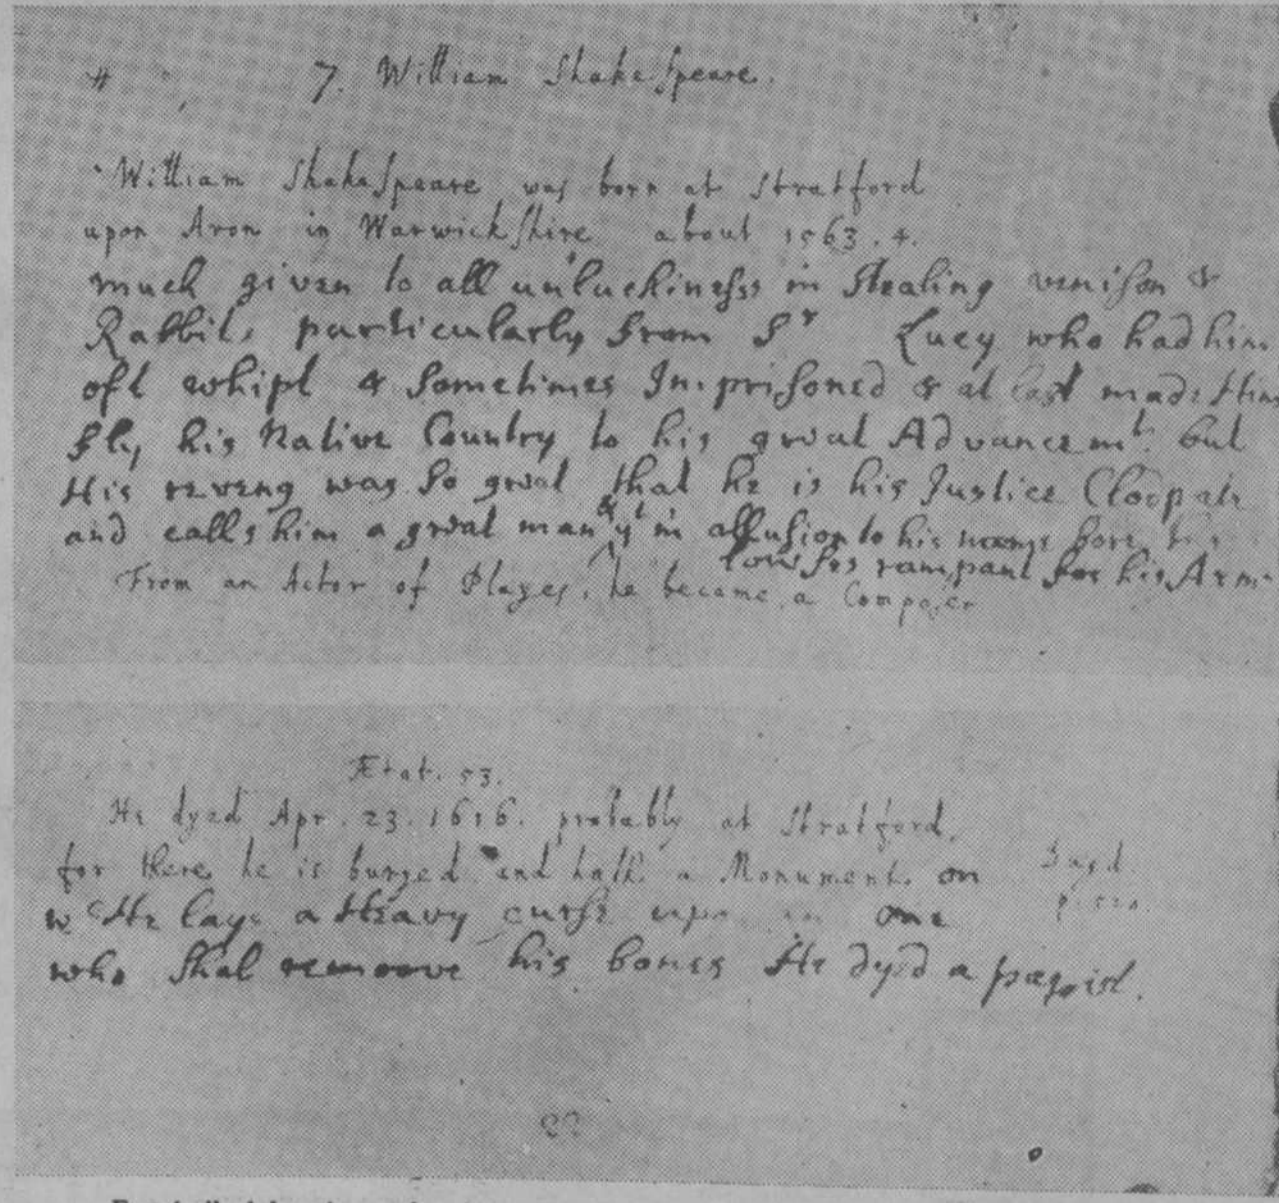 # 7. William ShakeSpeare.
William ShakeSpeare was born at Stratford
upon Avon in WarwickShire about 1563.4.
much given to all unluckinesse in stealing venison &
Rabbits particularly from Sr Lucy who had him
oft whipt & sometimes Imprisoned & at last made Him
fly his Native Country to his great Advancemt. but
His reveng was so great that he is his Justice Clodpate
and calls him a great man & yt in allusion to his name bore
lowses rampant for his Arms
From an Actor of Playes, he became a Composer
Ætat. 53.
He dyed Apr. 23. 1616. probably at Stratford,
for there he is buryed and hath a Monument on
Dugd.
p. 520.
wc He lays a Heavy curse upon any one
who shal remoove his bones He dyed a papist.
22